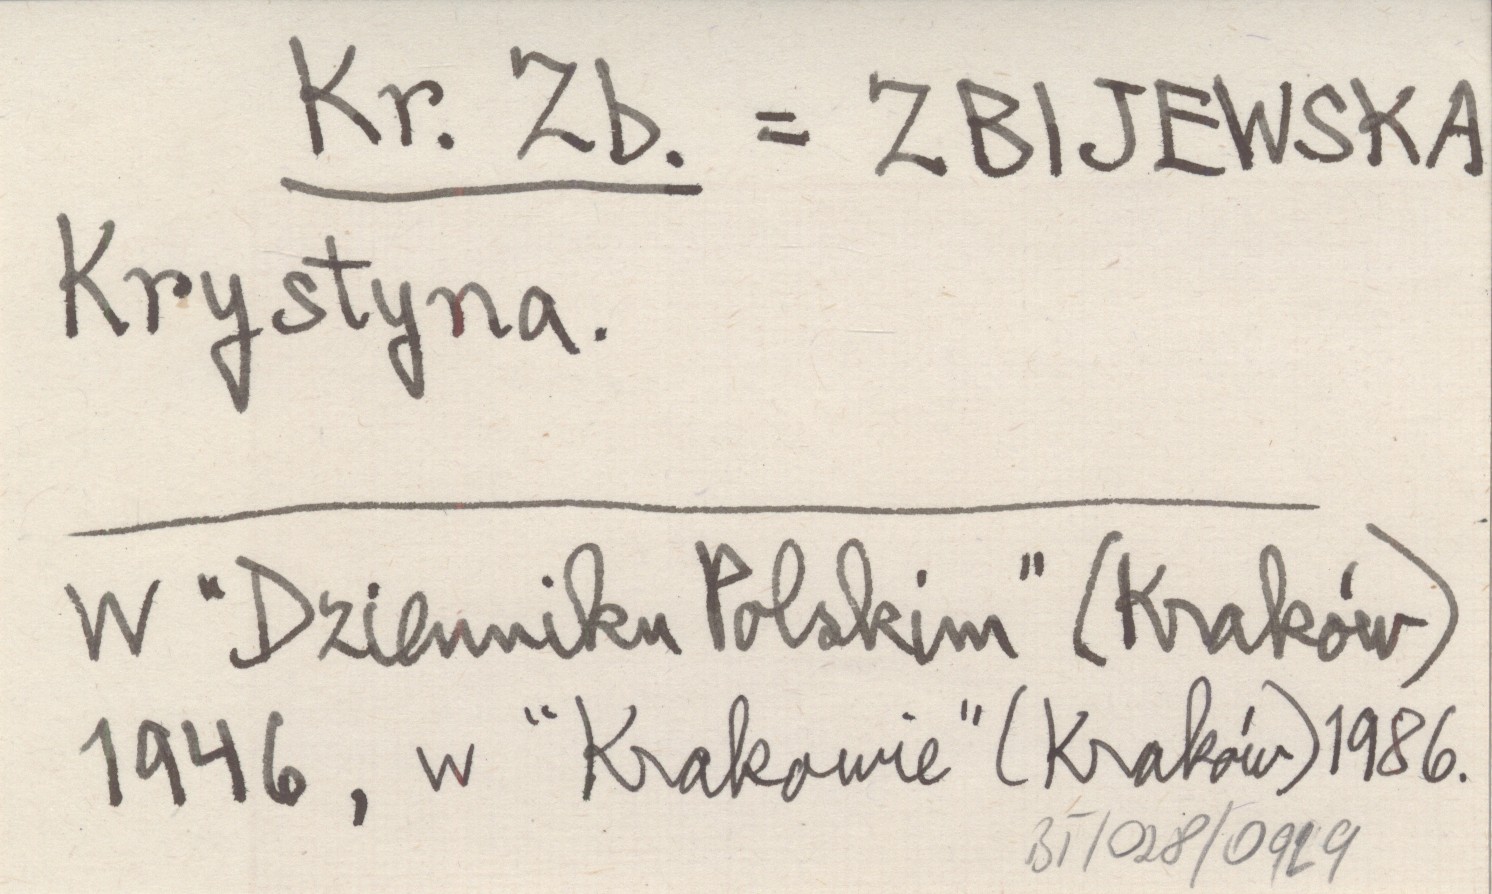 Kr. Zb. = ZBIJEWSKA
Krystyna.
W "Dzienniku Polskim" (Kraków)
1946, w "Krakowie" (Kraków) 1986.
BI/028/0929